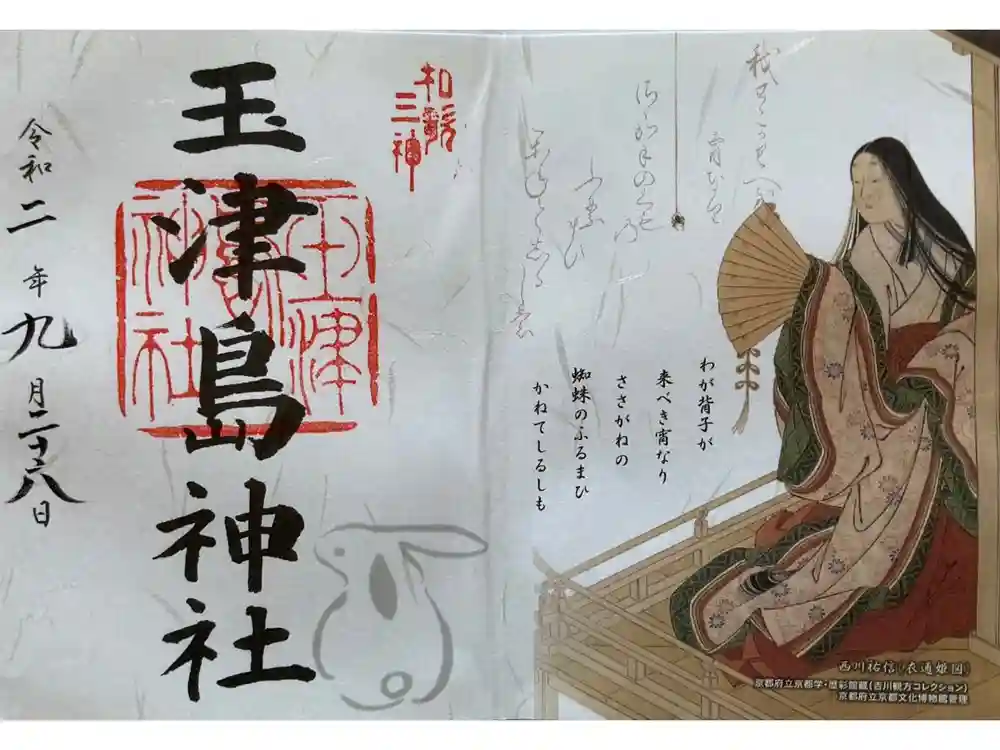 和歌
三神
玉津島神社
玉津
島
神社
令和二年九月二十八日
わが背子が
来べき宵なり
ささがねの
蜘蛛のふるまひ
かねてしるしも
西川祐信(衣通姫図)
京都府立京都学・歴彩館蔵(吉川観方コレクション)
京都府立京都文化博物館管理